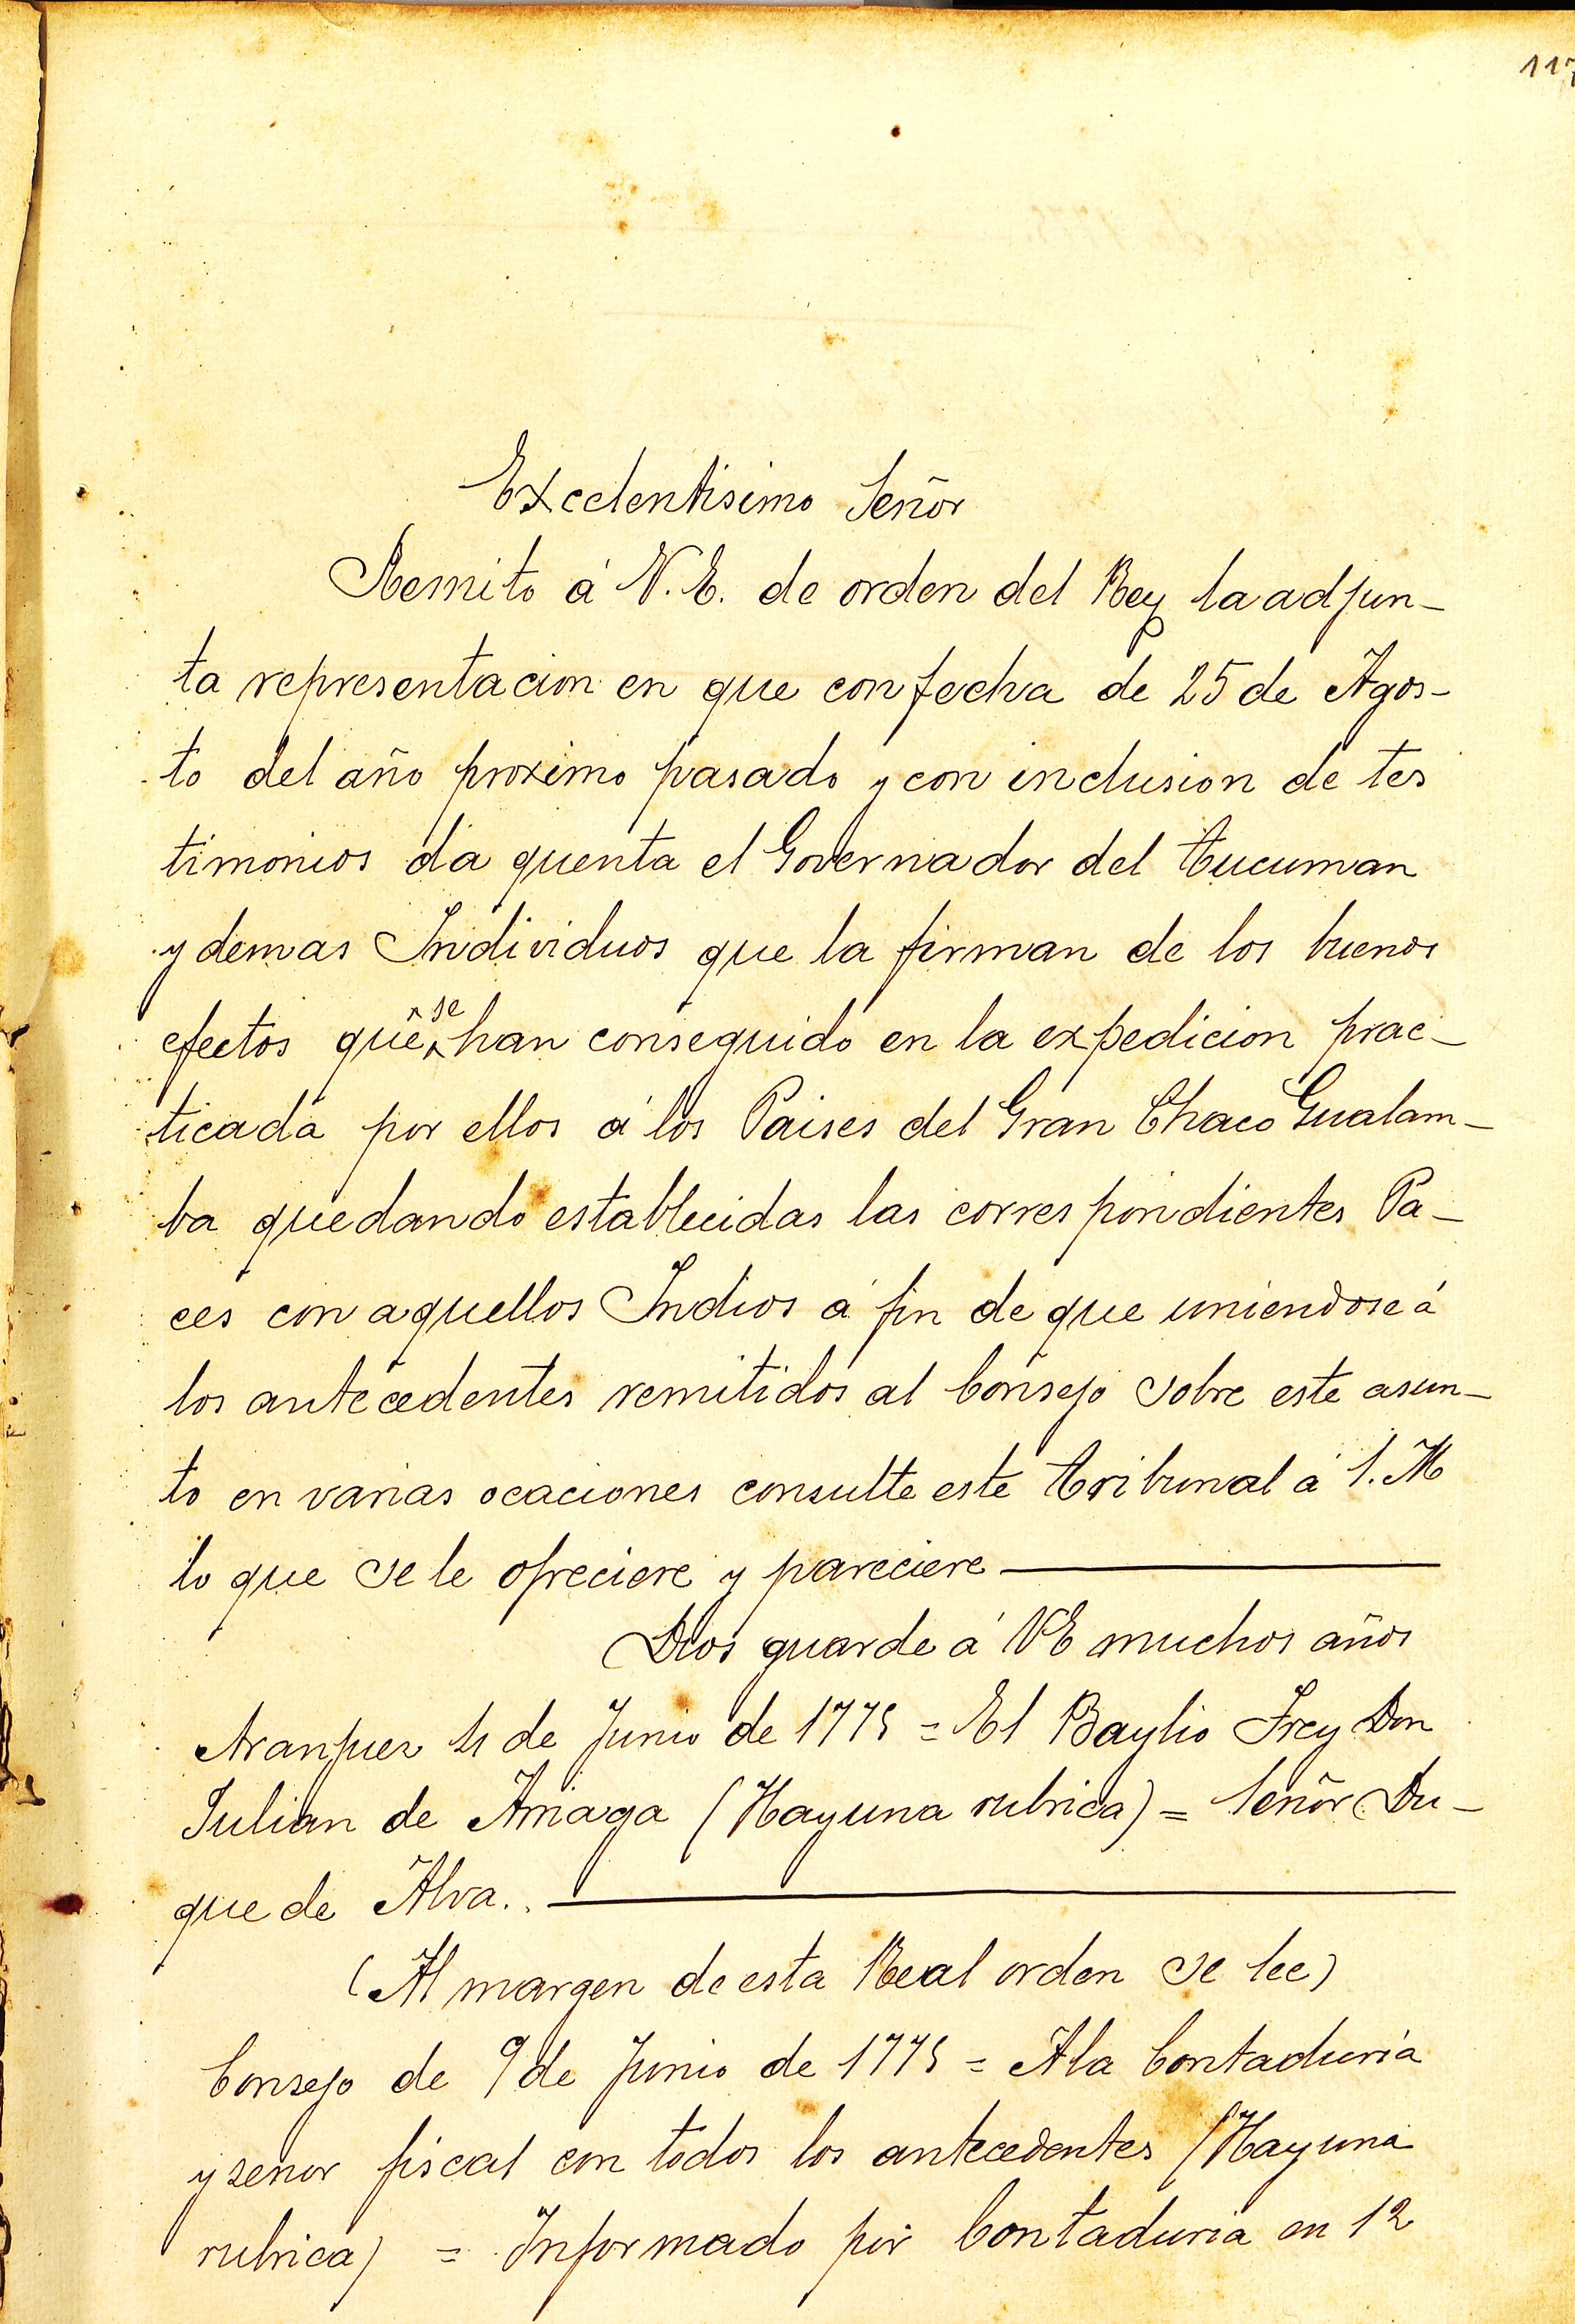 117
Excelentisimo Señor
Remito á V.E. de orden del Rey la adjun-
ta representacion en que con fecha de 25 de Agos-
to del año proximo pasado y con inclusion de tes
timonios da quenta el Governador del Tucuman
y demas Individuos que la firman de los buenos
efectos que se han conseguido en la expedicion prac-
ticada por ellos á los Paises del Gran Chaco Gualam-
ba quedando establecidas las correspondientes Pa-
ces con aquellos Indios á fin de que uniendose á
los antecedentes remitidos al Consejo sobre este asun-
to en varias ocaciones consulte este Tribunal á S. M
lo que se le ofreciere y pareciere
Dios guarde á VE muchos años
Aranjuez 4 de Junio de 1775 = El Baylio Frey Don
Julian de Arriaga (Hay una rubrica) = Señor Du-
que de Alva..
(Al margen de esta Real orden se lee)
Consejo de 9 de Junio de 1775 = A la Contaduría
y senor fiscal con todos los antecedentes (Hay una
rubrica) = Informado por Contaduria en 12